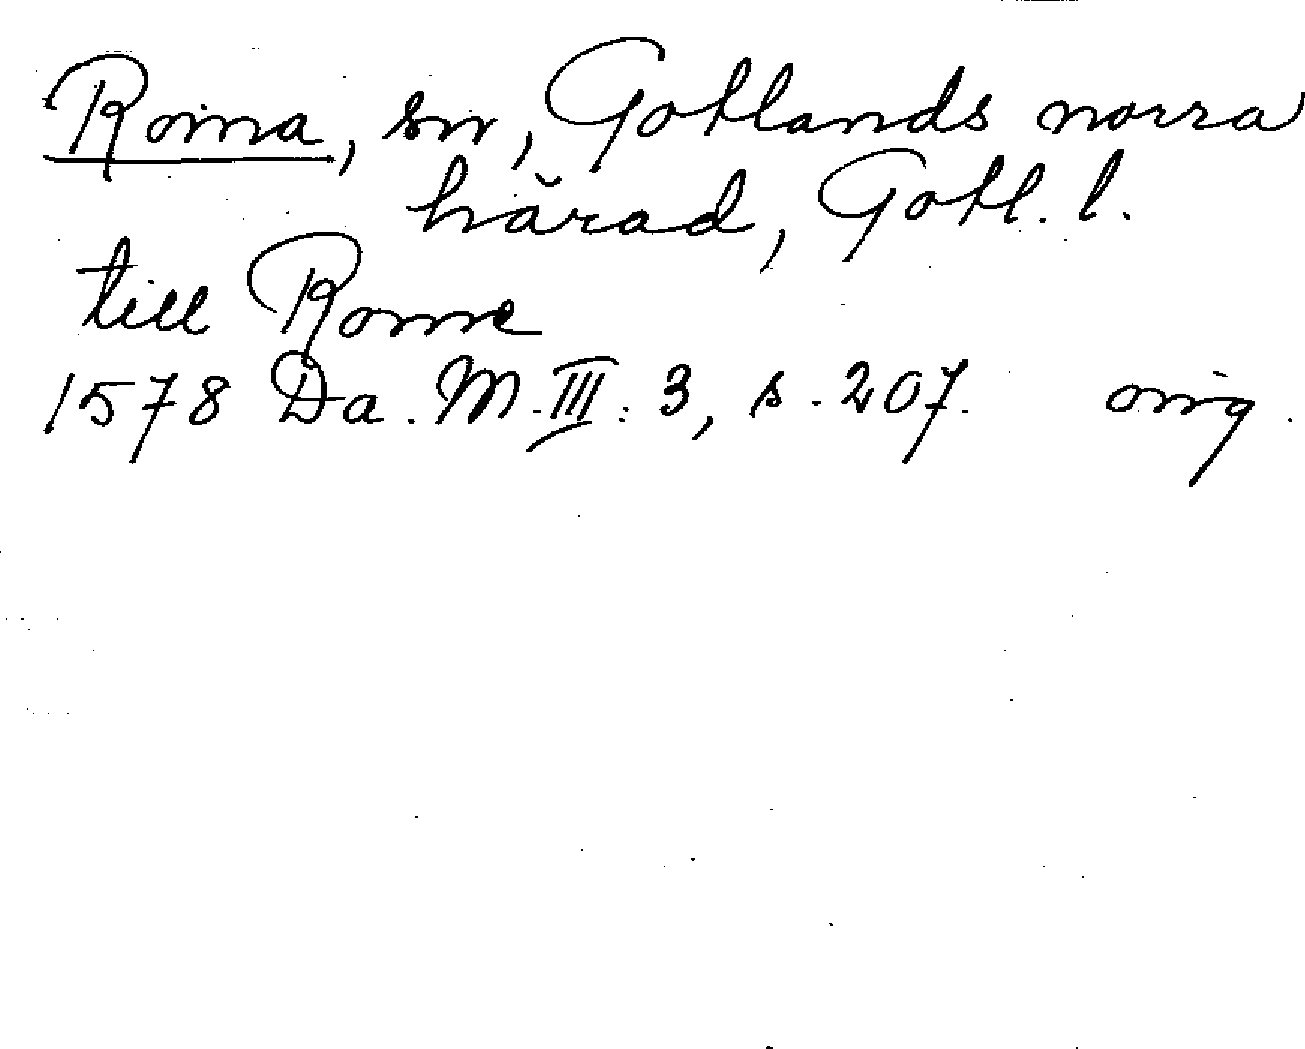 Roma, sn, Gotlands norra
härad, Gotl. l.
till Rome
1578 Da. M. III: 3, s. 207. orig.